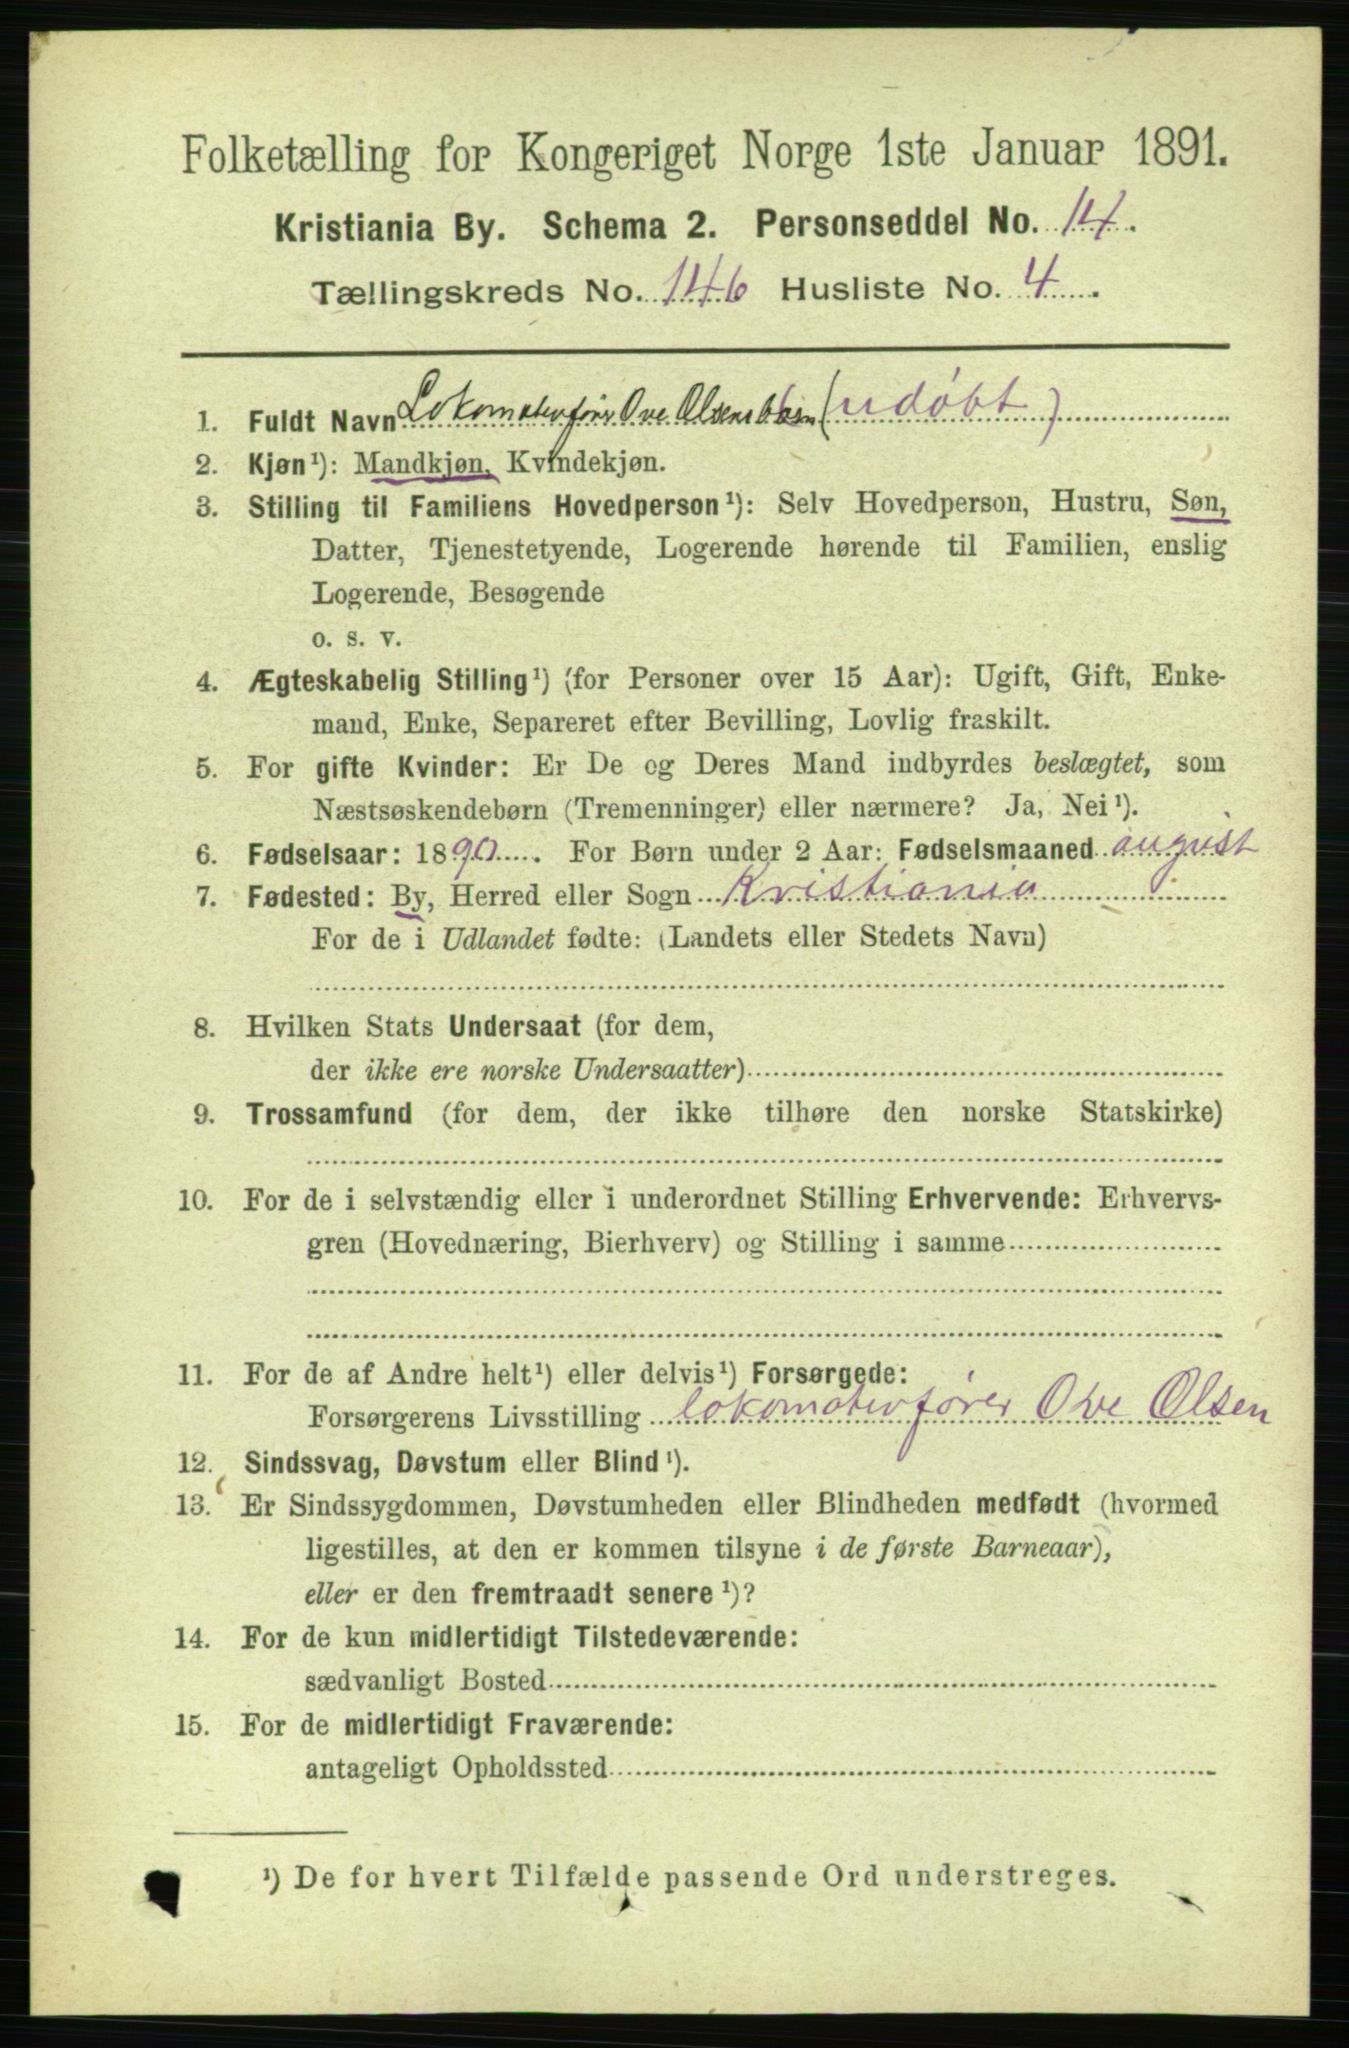 Folketælling for Kongeriget Norge 1ste Januar 1891.
Kristiania By. Schema 2. Personseddel No. 14.
Tællingskreds No. 146 Husliste No. 4.
1. Fuldt Navn Lokomotivfører Ove Olsens (udøbt)
2. Kjøn¹): Mandkjøn, Kvindekjøn.
3. Stilling til Familiens Hovedperson¹): Selv Hovedperson, Hustru, Søn,
Datter, Tjenestetyende, Logerende hørende til Familien, enslig
Logerende, Besøgende
o. s. v.
4. Ægteskabelig Stilling¹) (for Personer over 15 Aar): Ugift, Gift, Enke-
mand, Enke, Separeret efter Bevilling, Lovlig fraskilt.
5. For gifte Kvinder: Er De og Deres Mand indbyrdes beslægtet, som
Næstsøskendebørn (Tremenninger) eller nærmere? Ja, Nei¹).
6. Fødselsaar: 1890. For Børn under 2 Aar: Fødselsmaaned august
7. Fødested: By, Herred eller Sogn Kristiania
For de i Udlandet fødte: (Landets eller Stedets Navn)
8. Hvilken Stats Undersaat (for dem,
der ikke ere norske Undersaatter)
9. Trossamfund (for dem, der ikke tilhøre den norske Statskirke)
10. For de i selvstændig eller i underordnet Stilling Erhvervende: Erhvervs-
gren (Hovednæring, Bierhverv) og Stilling i samme
11. For de af Andre helt¹) eller delvis¹) Forsørgede:
Forsørgerens Livsstilling lokomotivfører Ove Olsen
12. Sindssvag, Døvstum eller Blind¹).
13. Er Sindssygdommen, Døvstumheden eller Blindheden medfødt (hvormed
ligestilles, at den er kommen tilsyne i de første Barneaar),
eller er den fremtraadt senere¹)?
14. For de kun midlertidigt Tilstedeværende:
sædvanligt Bosted
15. For de midlertidigt Fraværende:
antageligt Opholdssted
¹) De for hvert Tilfælde passende Ord understreges.